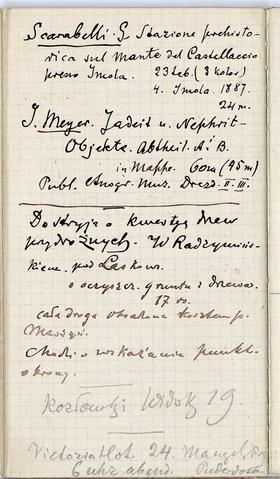 Scarabelli. G. Stazione prehisto-
rica sul Monte del Castellaccio
presso Imola. 23 tab. (3 kolor)
4. Imola. 1887.
24 m.
J. Meyer. Jadeit u. Nephrit-
Objekte. Abtheil. A. B.
in Mappe. 60 m (45 m)
Publ. Etnogr. Muz. Drezd. II. III.
Do Stryja o kwestyą drew
przydrożnych. W Radzymiń-
skiem pod Laskow.
o oczyszcz. gruntu z drzewa.
17 rs.
cała droga obsadzona kosztem p.
Maszyń.
Chodzi o wskazanie punkt.
obrony.
Kozłowski Widok 19.
Victoria Hot. 24.
6 uhr abend.